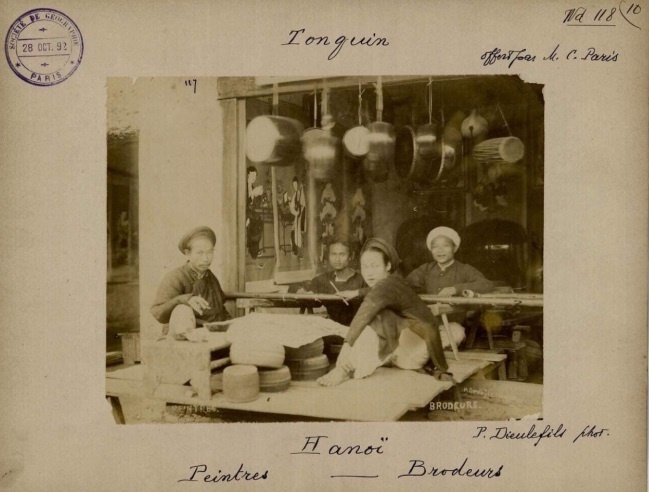 SOCIÉTÉ DE GÉOGRAPHIE
28 OCT. 92
PARIS
Tonquin
Wd 118 (10
offert par M. C. Paris
117
BRODEURS.
P. Dieulefils phot.
Hanoï
Peintres — Brodeurs